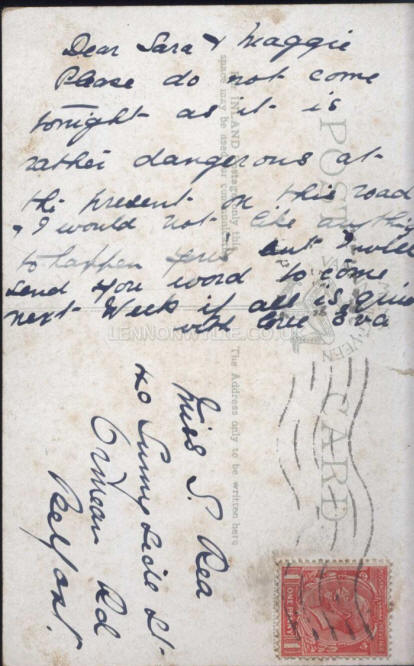 Dear Sara & Maggie
Please do not come
tonight as it is
rather dangerous at
the present on this road
& I would not like anything
to happen you but I will
send you word to come
next Week if all is quiet
with love Eva
Miss S. Rea
40 Sunny Side St
Ormeau Rd
Belfast
POST CARD
INLAND Postage only this
space may be used for communication
The Address only to be written here
LENNONWYLIE.CO.UK
ONE PENNY